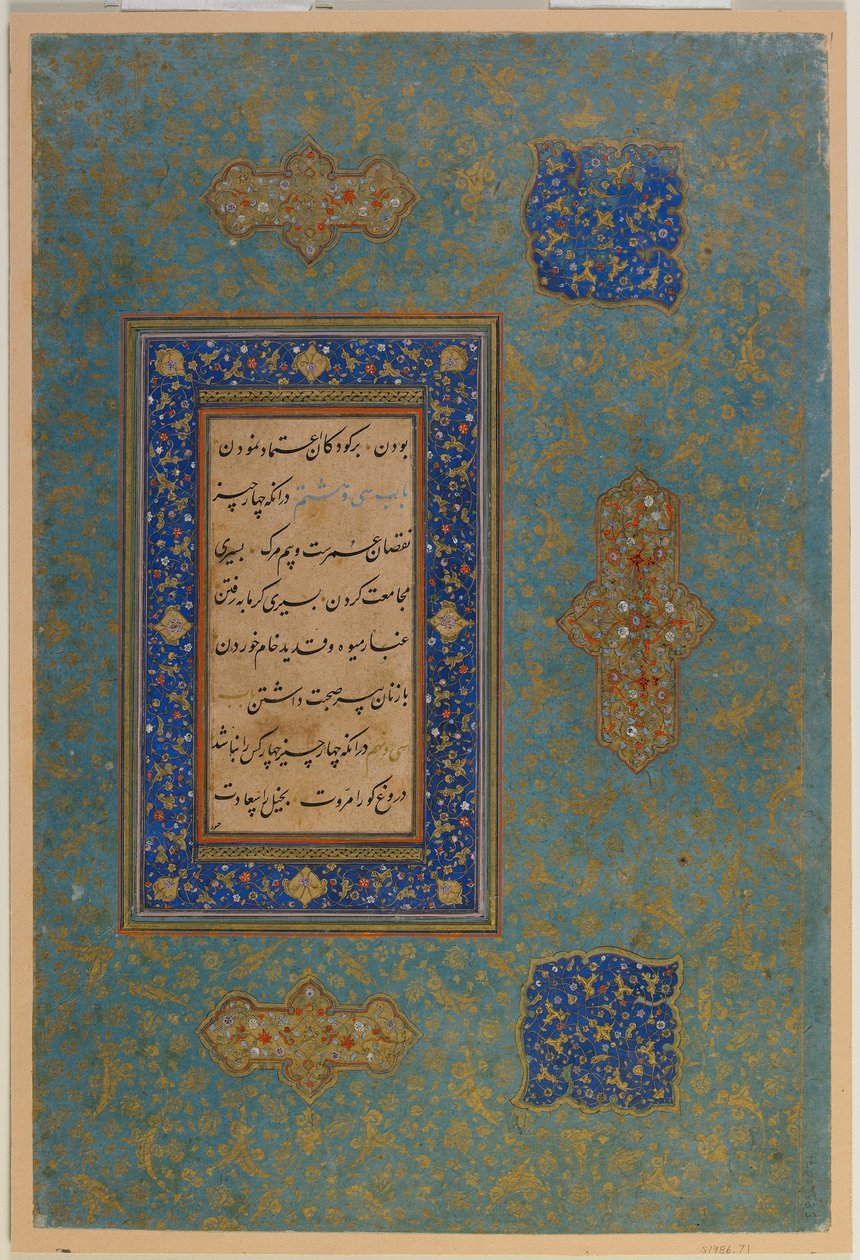 بودن برکودکان اعتماد نمودن
باب سی و هشتم درانکه چهار چیز
نقصان عمرست و بیم مرک بسیری
مجامعت کردن بسیری کرمابه رفتن
میوه و قدید خام خوردن
بازنان پیر صحبت داشتن باب
سی و نهم درانکه چهار چیز چهار کس را نباشد
دروغ کو را مروّت بخیل را
S1986.71